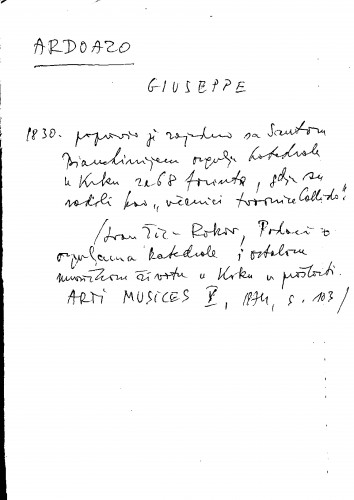 ARDOAZO
GIUSEPPE
1830. popravio je zajedno sa Santom
Bianchinijem orgulje katedrale
u Krku za 68 forinta, gdje su
radili kao "učenici tvornice Callido".
/Ivan Žic-Rokov, Podaci o
orguljama katedrale i ostalom
muzičkom životu u Krku u prošlosti.
ARTI MUSICES V, 1974, s. 103/